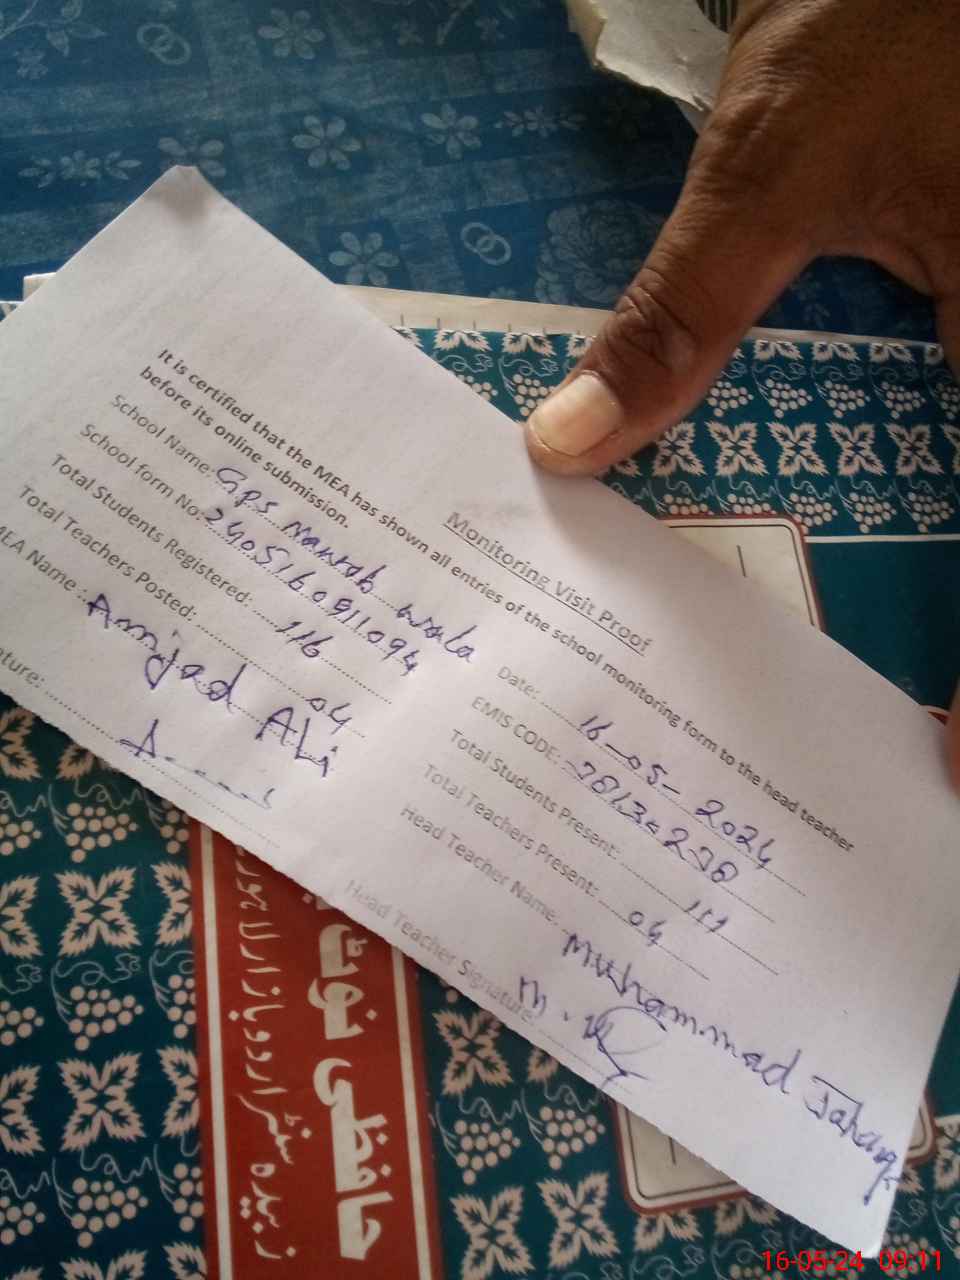 Monitoring Visit Proof
It is certified that the MEA has shown all entries of the school monitoring form to the head teacher
before its online submission.
School Name: GPS wala
Date: 16-05-2024
School form No: 2405160911094
EMIS CODE:
Total Students Registered: 116
Total Students Present: 111
Total Teachers Posted: 04
Total Teachers Present: 04
MEA Name: Amjad ALi
Head Teacher Name: Muhammad
ature:
Head Teacher Signature:
حافظی نوٹ
زبیدہ سنٹر اردو بازار لاہور
16-05-24 09:11